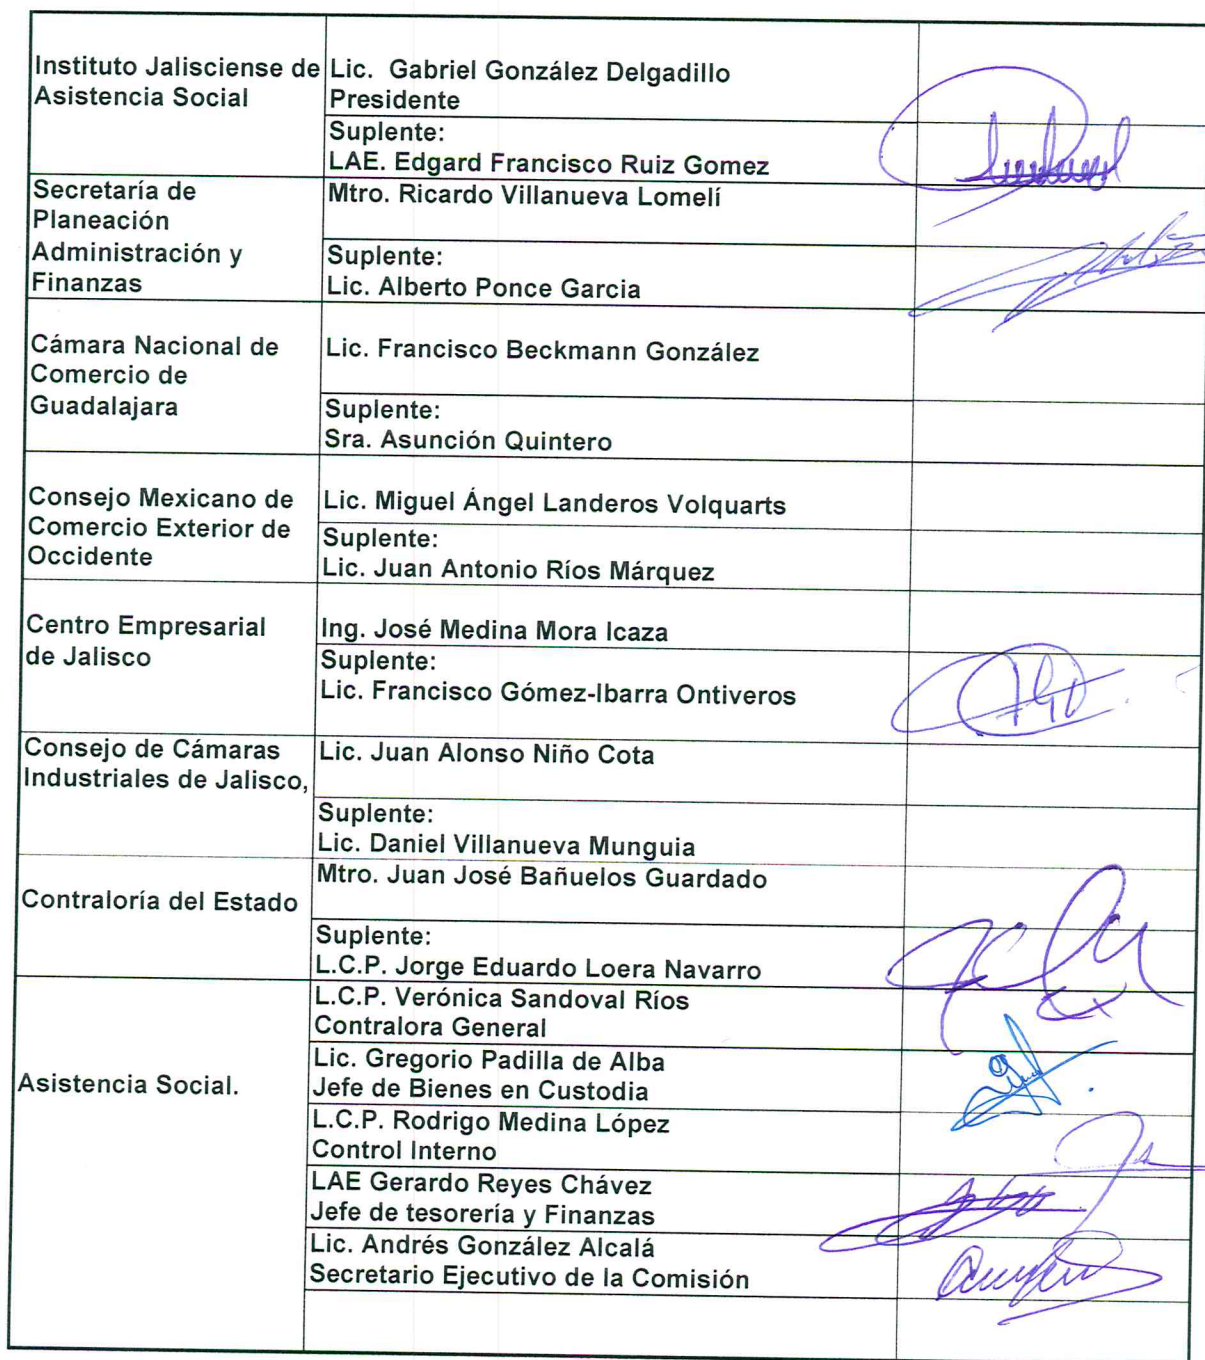 Instituto Jalisciense de
Asistencia Social
Lic. Gabriel González Delgadillo
Presidente
Suplente:
LAE. Edgard Francisco Ruiz Gomez
Secretaría de
Planeación
Administración y
Finanzas
Mtro. Ricardo Villanueva Lomelí
Suplente:
Lic. Alberto Ponce Garcia
Cámara Nacional de
Comercio de
Guadalajara
Lic. Francisco Beckmann González
Suplente:
Sra. Asunción Quintero
Consejo Mexicano de
Comercio Exterior de
Occidente
Lic. Miguel Ángel Landeros Volquarts
Suplente:
Lic. Juan Antonio Ríos Márquez
Centro Empresarial
de Jalisco
Ing. José Medina Mora Icaza
Suplente:
Lic. Francisco Gómez-Ibarra Ontiveros
Consejo de Cámaras
Industriales de Jalisco,
Lic. Juan Alonso Niño Cota
Suplente:
Lic. Daniel Villanueva Munguia
Contraloría del Estado
Mtro. Juan José Bañuelos Guardado
Suplente:
L.C.P. Jorge Eduardo Loera Navarro
Asistencia Social.
L.C.P. Verónica Sandoval Ríos
Contralora General
Lic. Gregorio Padilla de Alba
Jefe de Bienes en Custodia
L.C.P. Rodrigo Medina López
Control Interno
LAE Gerardo Reyes Chávez
Jefe de tesorería y Finanzas
Lic. Andrés González Alcalá
Secretario Ejecutivo de la Comisión